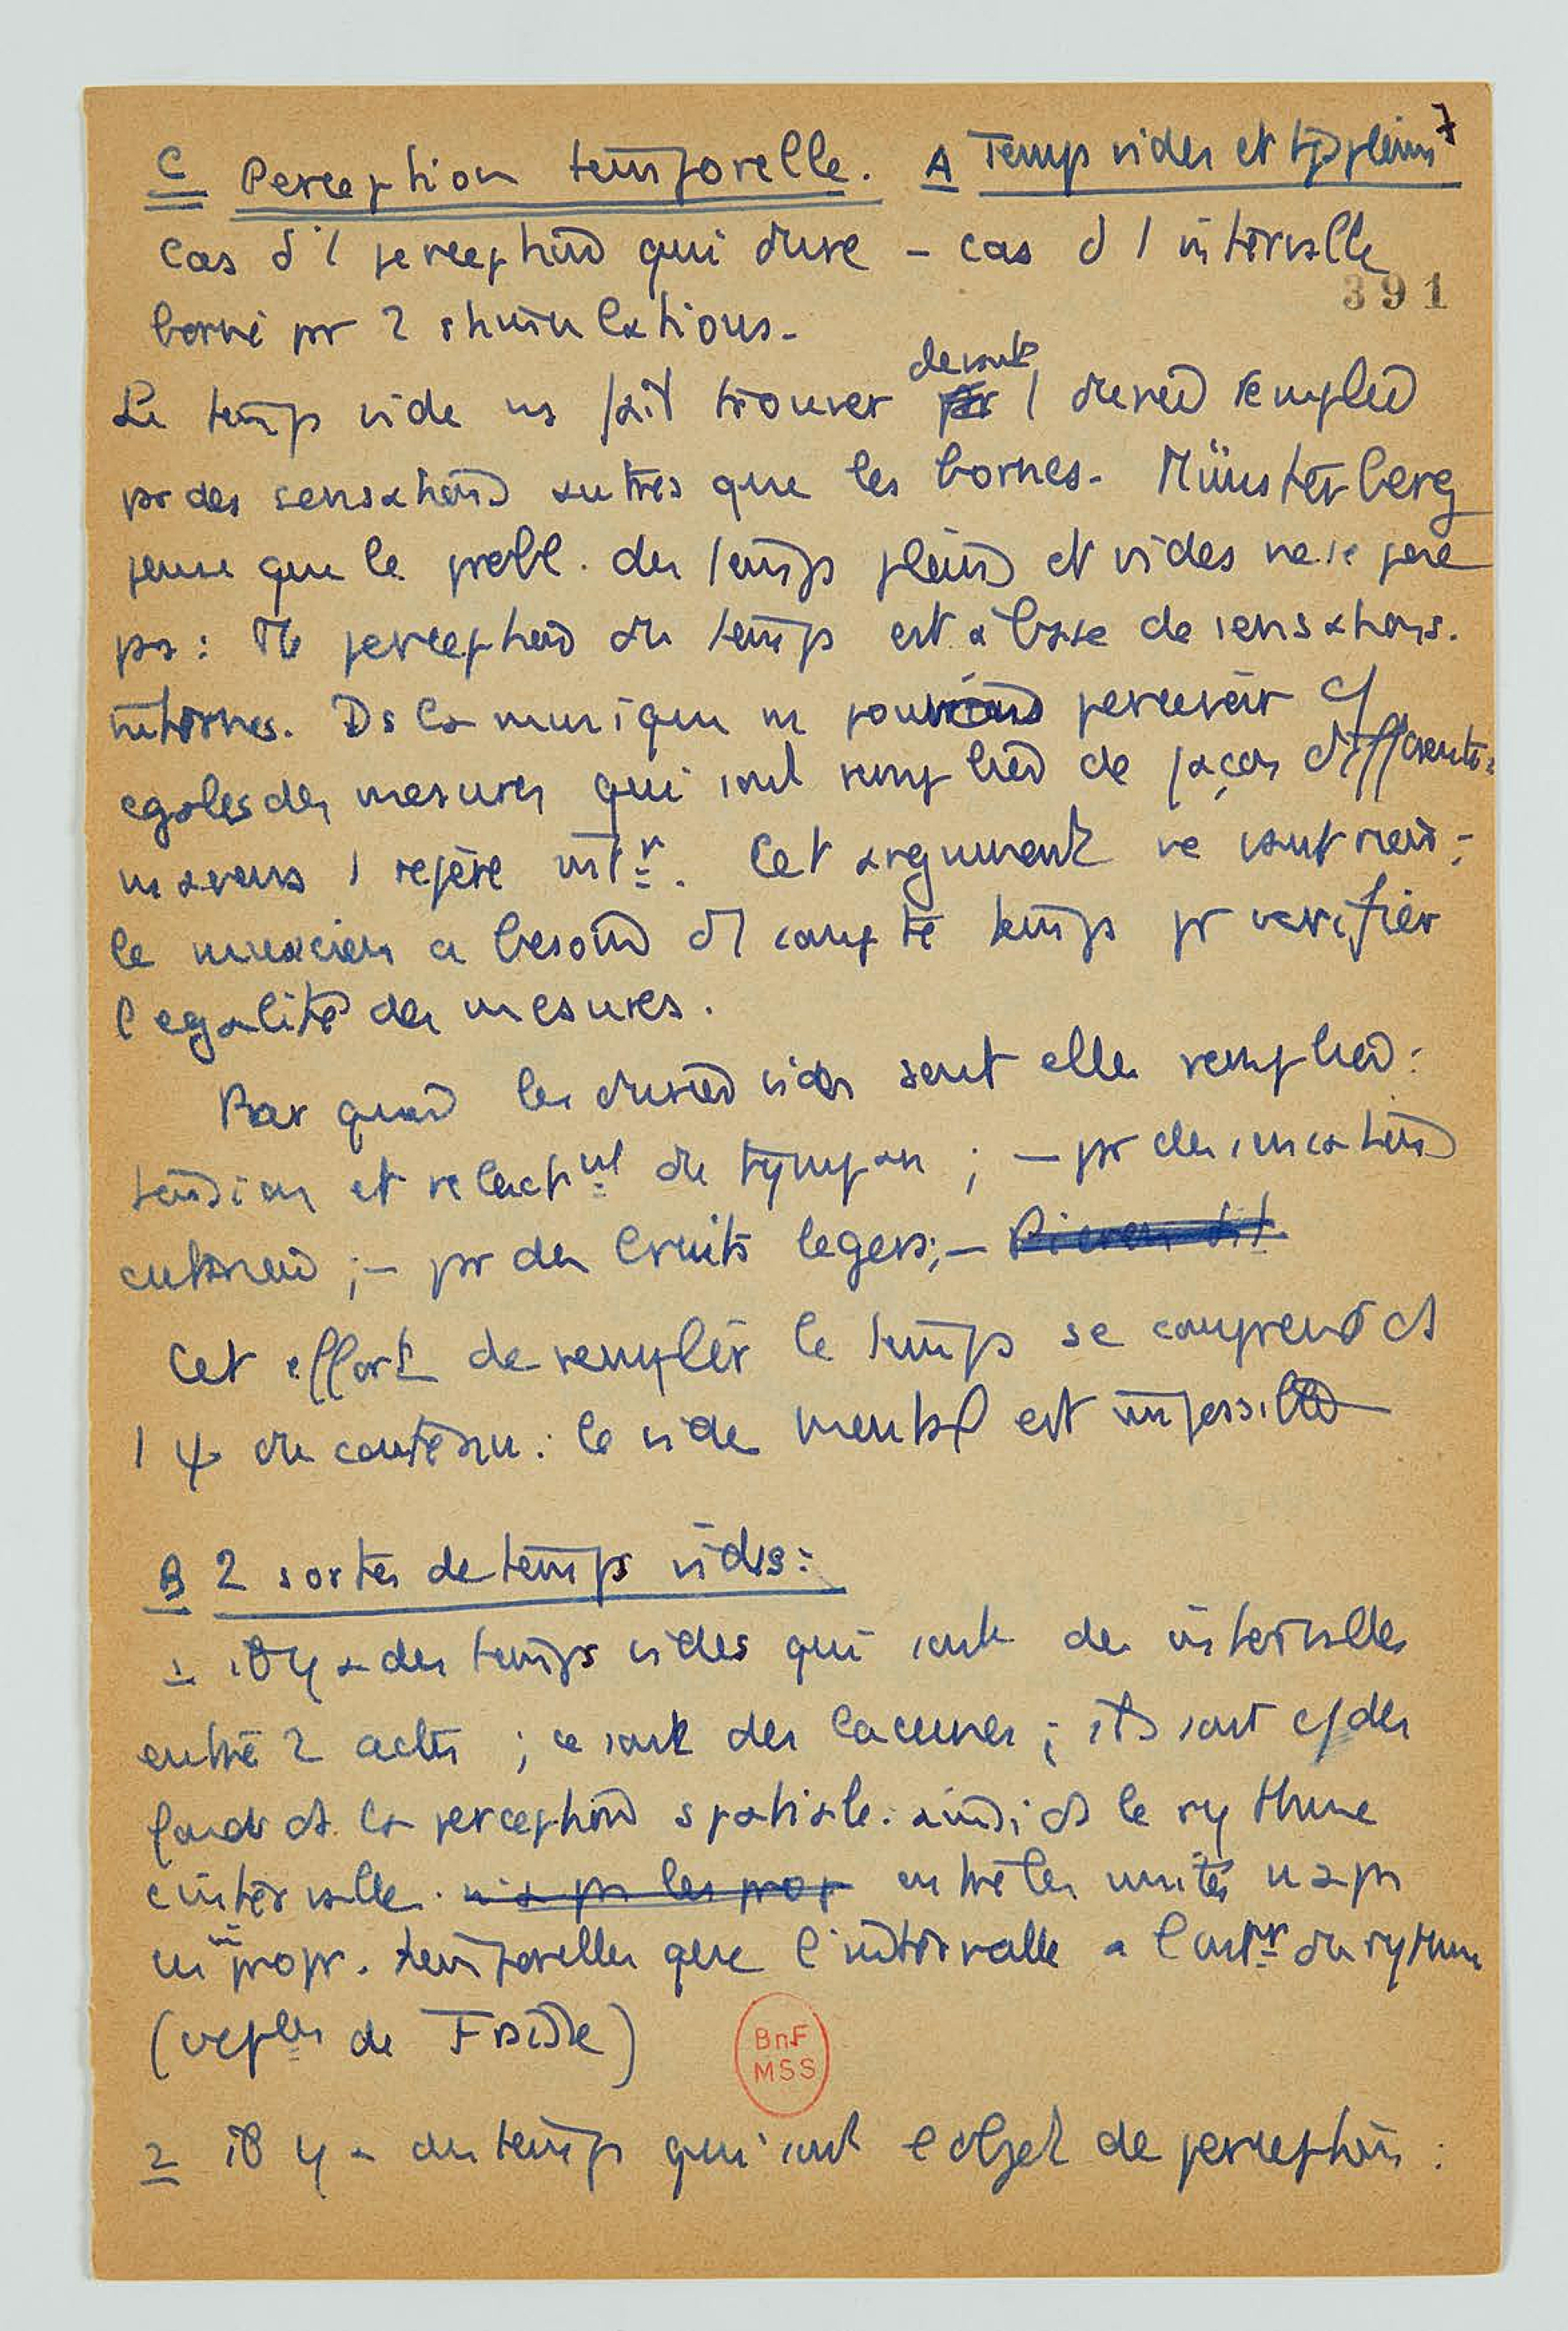 C Perception temporelle. A Temps vides et tps pleins 7
Cas d'1 perception qui dure – cas d'1 intervalle
391
borné pr 2 stimulations.
Le temps vide ns fait trouver devant 1 durée remplie
pr des sensations autres que les bornes. Münsterberg
pense que le probl. des temps pleins et vides ne se pose
pas : tte perception du temps est à base de sensations
internes. Ds la musique ns pouvons percevoir c/
egales des mesures qui sont remplies de façon différentes
ns avons 1 repère intr. Cet argument ne vaut rien ;
le musicien a besoin d'1 compte temps pr verifier
l'egalité des mesures.
Par quoi les durées vides sont elles remplies :
tension et relacht du tympan ; – pr des sensations
cutanées ; – pr des bruits legers ; –
Cet effort de remplir le temps se comprend ds
1 ψ du contenu : le vide mental est impossible
B 2 sortes de temps vides :
1 il y a des temps vides qui sont des intervalles
entre 2 actes ; ce sont des lacunes ; ils sont c/ des
fonds ds la perception spatiale. ainsi ds le rythme
l'intervalle. n'a pas les prop entre les unités n'a pas
les m propr. temporelles que l'intervalle a l'intr du rythme
de Fraisse)
2 il y a des temps qui sont l'objet de perception :
BnF
MSS